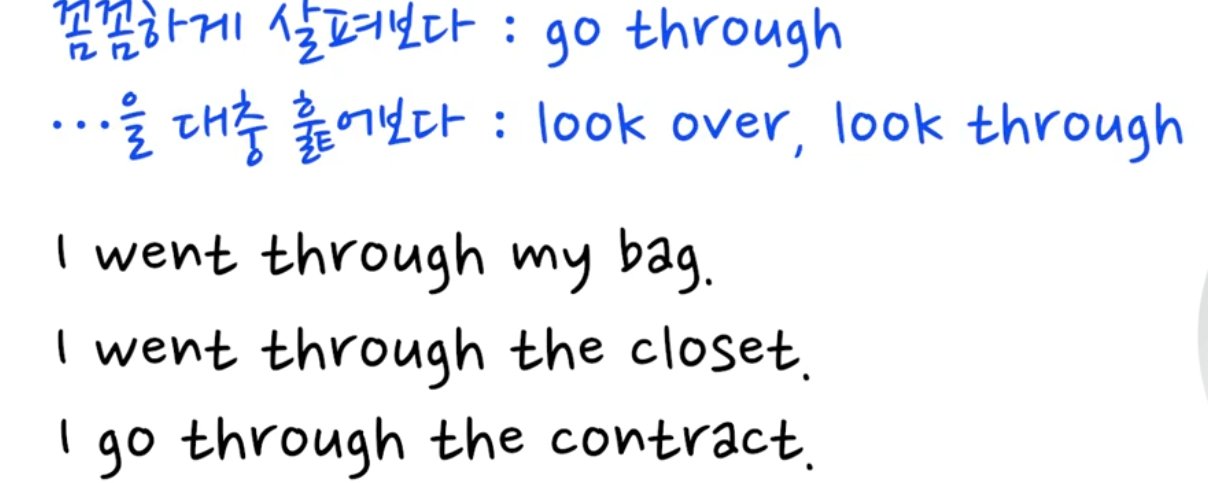 꼼꼼하게 살펴보다 : go through
...을 대충 훑어보다 : look over, look through
I went through my bag.
I went through the closet.
I go through the contract.